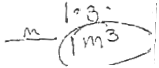 1·3·
m 1m3